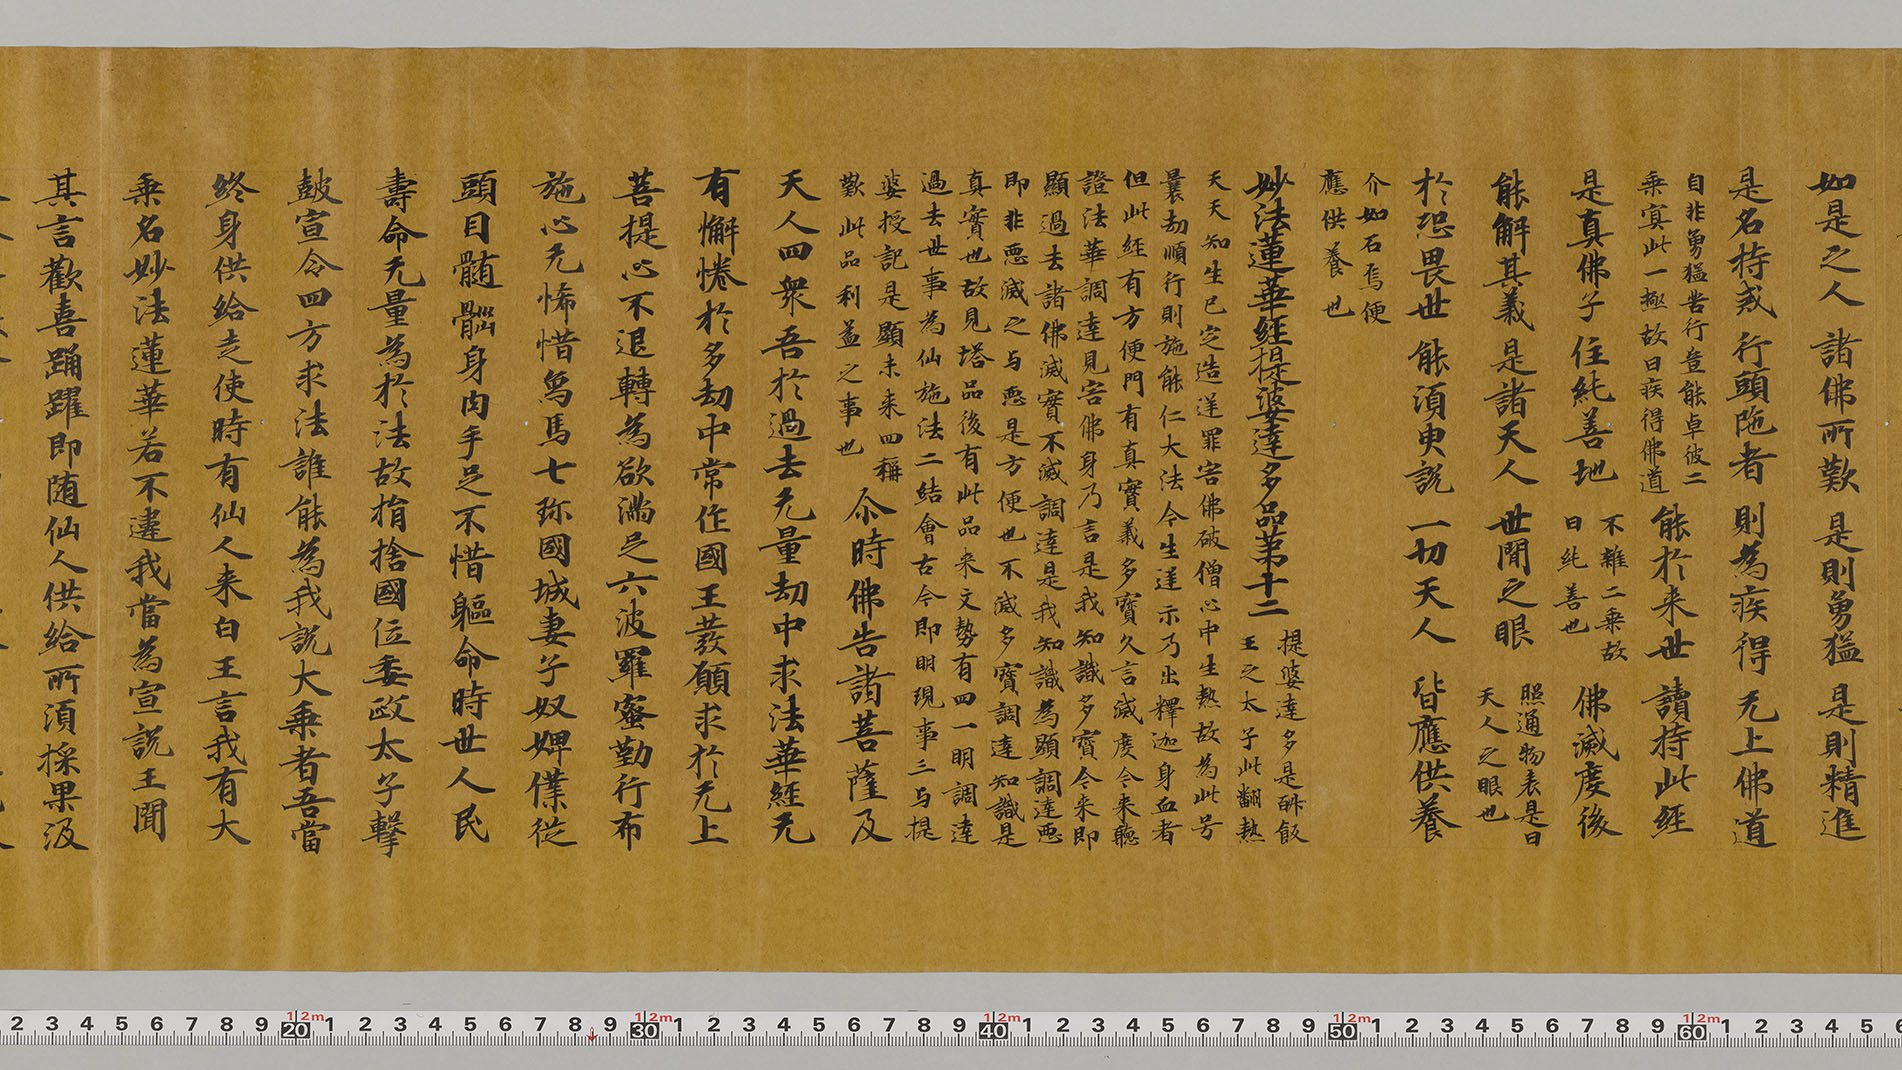 如是之人 諸佛所歎 是則勇猛 是則精進
是名持戒 行頭陁者 則為疾得 无上佛道
自非勇猛苦行豈能卓彼二
乘寘此一極故曰疾得佛道
能於来世 讀持此經
是真佛子 住純善地
不雜二乗故
曰純善也
佛滅度後
能解其義 是諸天人 世間之眼
照通物表是曰
天人之眼也
於恐畏世 能須臾說 一切天人 皆應供養
介如石焉便
應供養也
妙法蓮華經提婆達多品第十二
提婆達多是斛飯
王之太子此翻熱
天天知生已定造逆罪害佛破僧心中生熱故為此号
曩劫順行則施能仁大法今生逆示乃出釋迦身血者
但此經有方便門有真實義多寶久言滅度今来聽
證法華調達見害佛身乃言是我知識多寶今来即
顯過去諸佛滅實不滅調達是我知識為顯調達惡
即非惡滅之与惡是方便也不滅多寶調達知識是
真實也故見塔品後有此品来文勢有四一明調達
過去世事為仙施法二結會古今即明現事三与提
婆授記是顯未来四稱
歎此品利益之事也
尒時佛告諸菩薩及
天人四衆吾於過去无量劫中求法華經无
有懈惓於多劫中常作國王發願求於无上
菩提心不退轉為欲滿足六波羅蜜勤行布
施心无悕惜烏馬七珎國城妻子奴婢僕從
頭目髓𦛁身肉手足不惜軀命時世人民
壽命无量為於法故捐捨國位委政太子擊
鼓宣令四方求法誰能為我說大乗者吾當
終身供給走使時有仙人来白王言我有大
乗名妙法蓮華若不違我當為宣說王聞
其言歡喜踊躍即随仙人供給所須採果汲